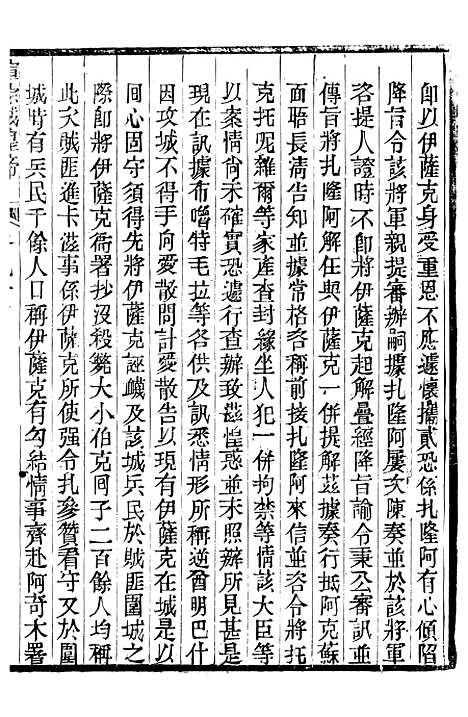 卽以伊薩克身受重恩不應遽懷攜貳恐係扎隆阿有心傾陷
降旨令該將軍親提審辦嗣據扎隆阿屢次陳奏並於該將軍
咨提人證時不卽將伊薩克起解疊經降旨諭令秉公審訊並
傳旨將扎隆阿解任與伊薩克一併提解茲據奏行抵阿克蘇
面晤長清告知並據常格等前接扎隆阿來信並令將托
克托呢雜爾等家產查封緣坐人犯一併拘禁等情該大臣等
以案情尚未確實恐遽行查辦致茲惶惑並未照辦所見甚是
現在訊據布嚕特毛拉等各供及訊悉情形所稱逆酋明巴什
因攻城不下向愛散問計愛散告以現有伊薩克在城是以
同心固守須得先將伊薩克誣衊及該城兵民於賊匪圍城之
際卽將伊薩克衙署抄沒殺斃大小伯克回子二百餘人均稱
此次賊匪進卡滋事係伊薩克所使强令扎參贊看守又於圍
城時有兵民千餘人口稱伊薩克有勾結情事齊赴阿奇木署